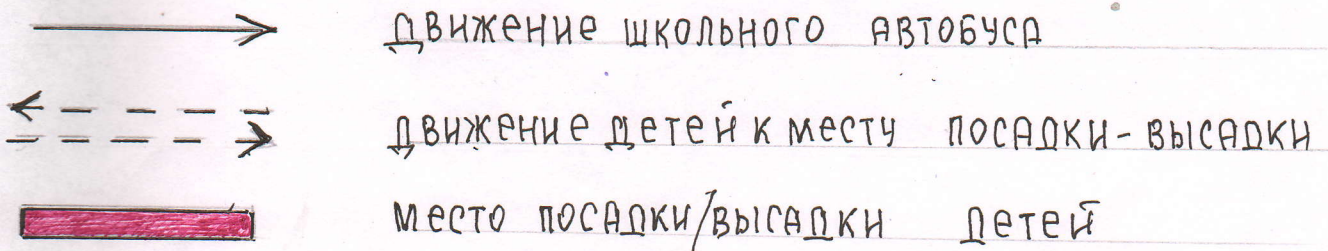 движение школьного автобуса
движение детей к месту посадки-высадки
место посадки/высадки детей